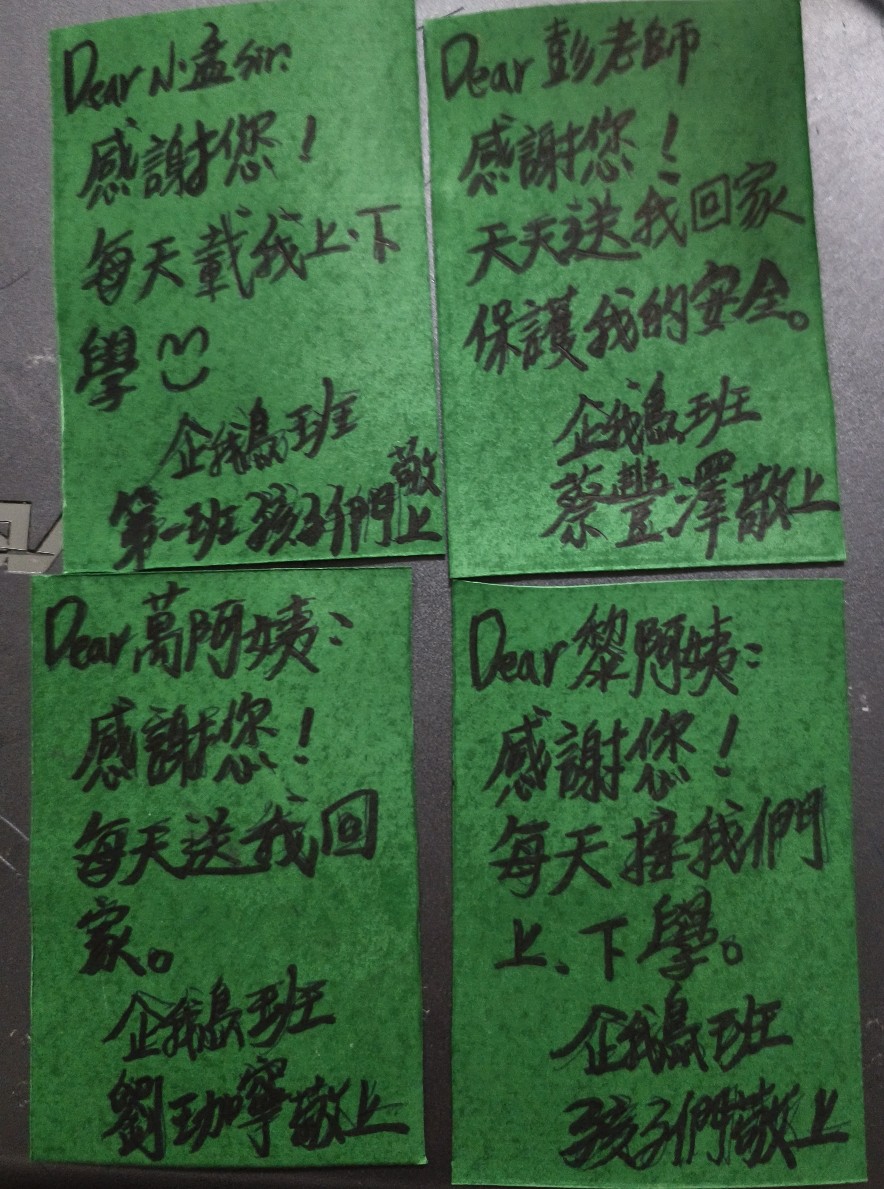 Dear 小孟 Sir:
感謝您！
每天載我上、下
學
企鵝班
第一班孩子們敬上
Dear 彭老師
感謝您！
天天送我回家
保護我的安全。
企鵝班
蔡豐澤敬上
Dear 萬阿姨：
感謝您！
每天送我回
家。
企鵝班
劉玏寧敬上
Dear 黎阿姨：
感謝您！
每天接我們
上、下學。
企鵝班
孩子們敬上